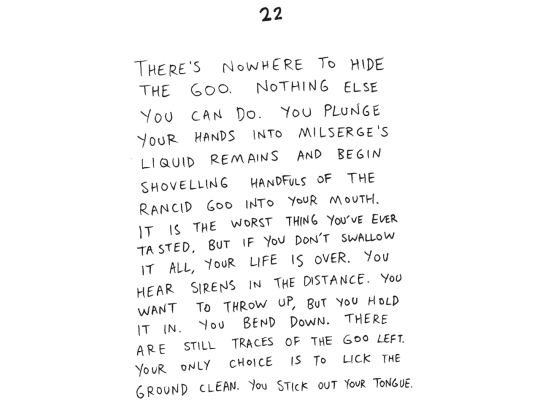 22
THERE'S NOWHERE TO HIDE
THE GOO. NOTHING ELSE
YOU CAN DO. YOU PLUNGE
YOUR HANDS INTO MILSERGE'S
LIQUID REMAINS AND BEGIN
SHOVELLING HANDFULS OF THE
RANCID GOO INTO YOUR MOUTH.
IT IS THE WORST THING YOU'VE EVER
TASTED, BUT IF YOU DON'T SWALLOW
IT ALL, YOUR LIFE IS OVER. YOU
HEAR SIRENS IN THE DISTANCE. YOU
WANT TO THROW UP, BUT YOU HOLD
IT IN. YOU BEND DOWN. THERE
ARE STILL TRACES OF THE GOO LEFT.
YOUR ONLY CHOICE IS TO LICK THE
GROUND CLEAN. YOU STICK OUT YOUR TONGUE.